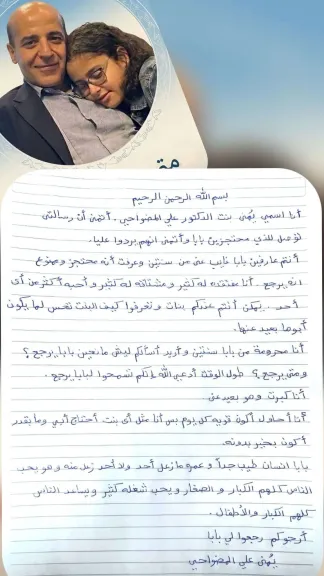 بسم الله الرحمن الرحيم
أنا اسمي يُمنى بنت الدكتور علي المضواحي. أتمنى أن رسالتي
توصل للذي محتجزين بابا وأتمنى انهم يردوا عليا.
أنتم عارفين بابا غايب عني من سنتين وعرفت أنه محتجز وممنوع
انه يرجع. أنا مفتقدة له كثير ومشتاقة له كثير وأحبه أكثر من أي
أحد. يمكن أنتم عندكم بنات وتعرفوا كيف البنت تحس لما يكون
أبوها بعيد عنها.
أنا محرومة من بابا سنتين وأريد أسألكم ليش مانعين بابا يرجع؟
ومتى يرجع؟ طول الوقت أدعي الله إنكم تسمحوا لبابا يرجع.
أنا كبرت وهو بعيد عني
أنا أحاول أكون قوية كل يوم بس أنا مثل أي بنت أحتاج أبي وما بقدر
أكون بخير بدونه.
بابا انسان طيب جداً وعمره ما زعل أحد ولا أحد زعل منه وهو يحب
الناس كلهم الكبار و الصغار ويحب شغله كثير ويساعد الناس
كلهم الكبار والأطفال.
أرجوكم رجعوا لي بابا
يُمنى علي المضواحي